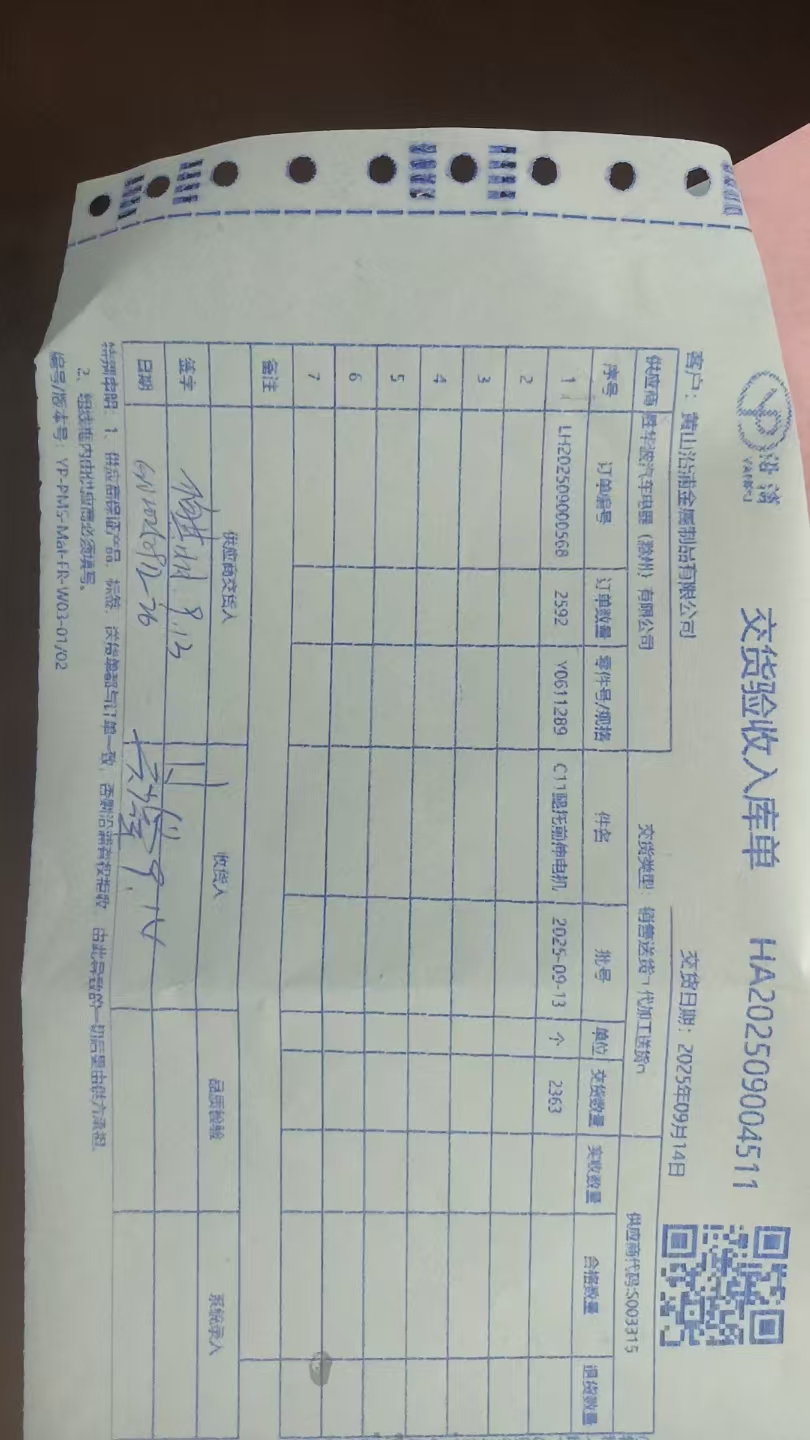 沿浦
YANPU
交货验收入库单 HA202509004511
客户：黄山沿浦金属制品有限公司 交货日期：2025年09月14日
供应商 胜华波汽车电器（滁州）有限公司 交货类型：销售送货 代加工送货 供应商代码:S003315
序号 订单编号 订单数量 零件号/规格 件名 批号 单位 交货数量 实收数量 合格数量 退货数量
1 LH202509000568 2592 Y0611289 C11腿托前伸电机 2025-09-13 个 2363
2
3
4
5
6
7
备注
供应商交货人 收货人 品质检验 系统录入
签字 9.13
日期 9.14
特别申明：1、供应商保证产品、标签、送货单都与订单一致，否则沿浦有权拒收，由此导致的一切后果由供方承担。
2、粗线框内由供应商必须填写。
编号/版本号：YP-PMS-Mat-FR-W03-01/02